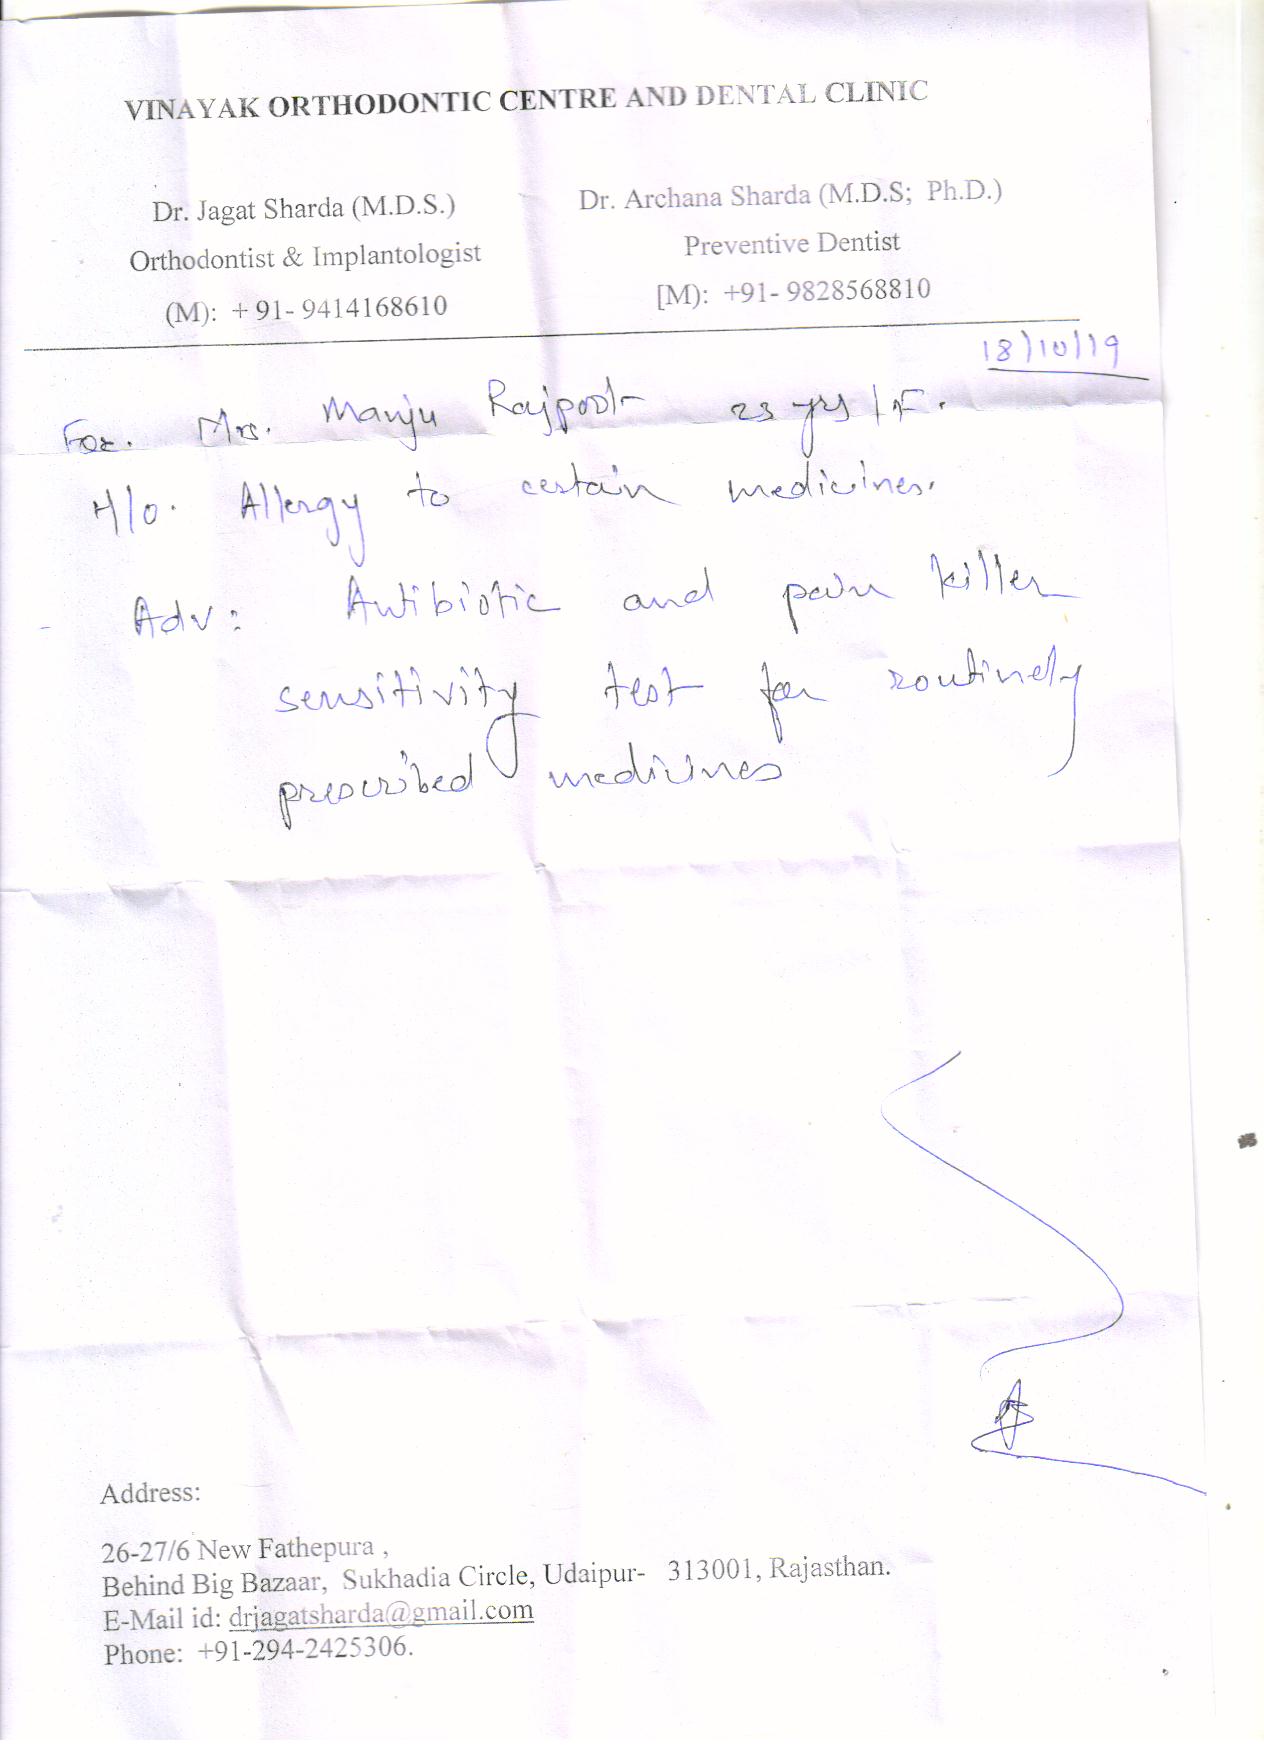 VINAYAK ORTHODONTIC CENTRE AND DENTAL CLINIC
Dr. Jagat Sharda (M.D.S.)
Orthodontist & Implantologist
(M): + 91- 9414168610
Dr. Archana Sharda (M.D.S; Ph.D.)
Preventive Dentist
[M): +91- 9828568810
18/10/19
For. Mrs. Manju Rajpoot 23 yrs / F.
H/o. Allergy to certain medicines.
Adv: Antibiotic and pain killer
sensitivity test for routinely
prescribed medicines
Address:
26-27/6 New Fathepura ,
Behind Big Bazaar, Sukhadia Circle, Udaipur- 313001, Rajasthan.
E-Mail id: drjagatsharda@gmail.com
Phone: +91-294-2425306.